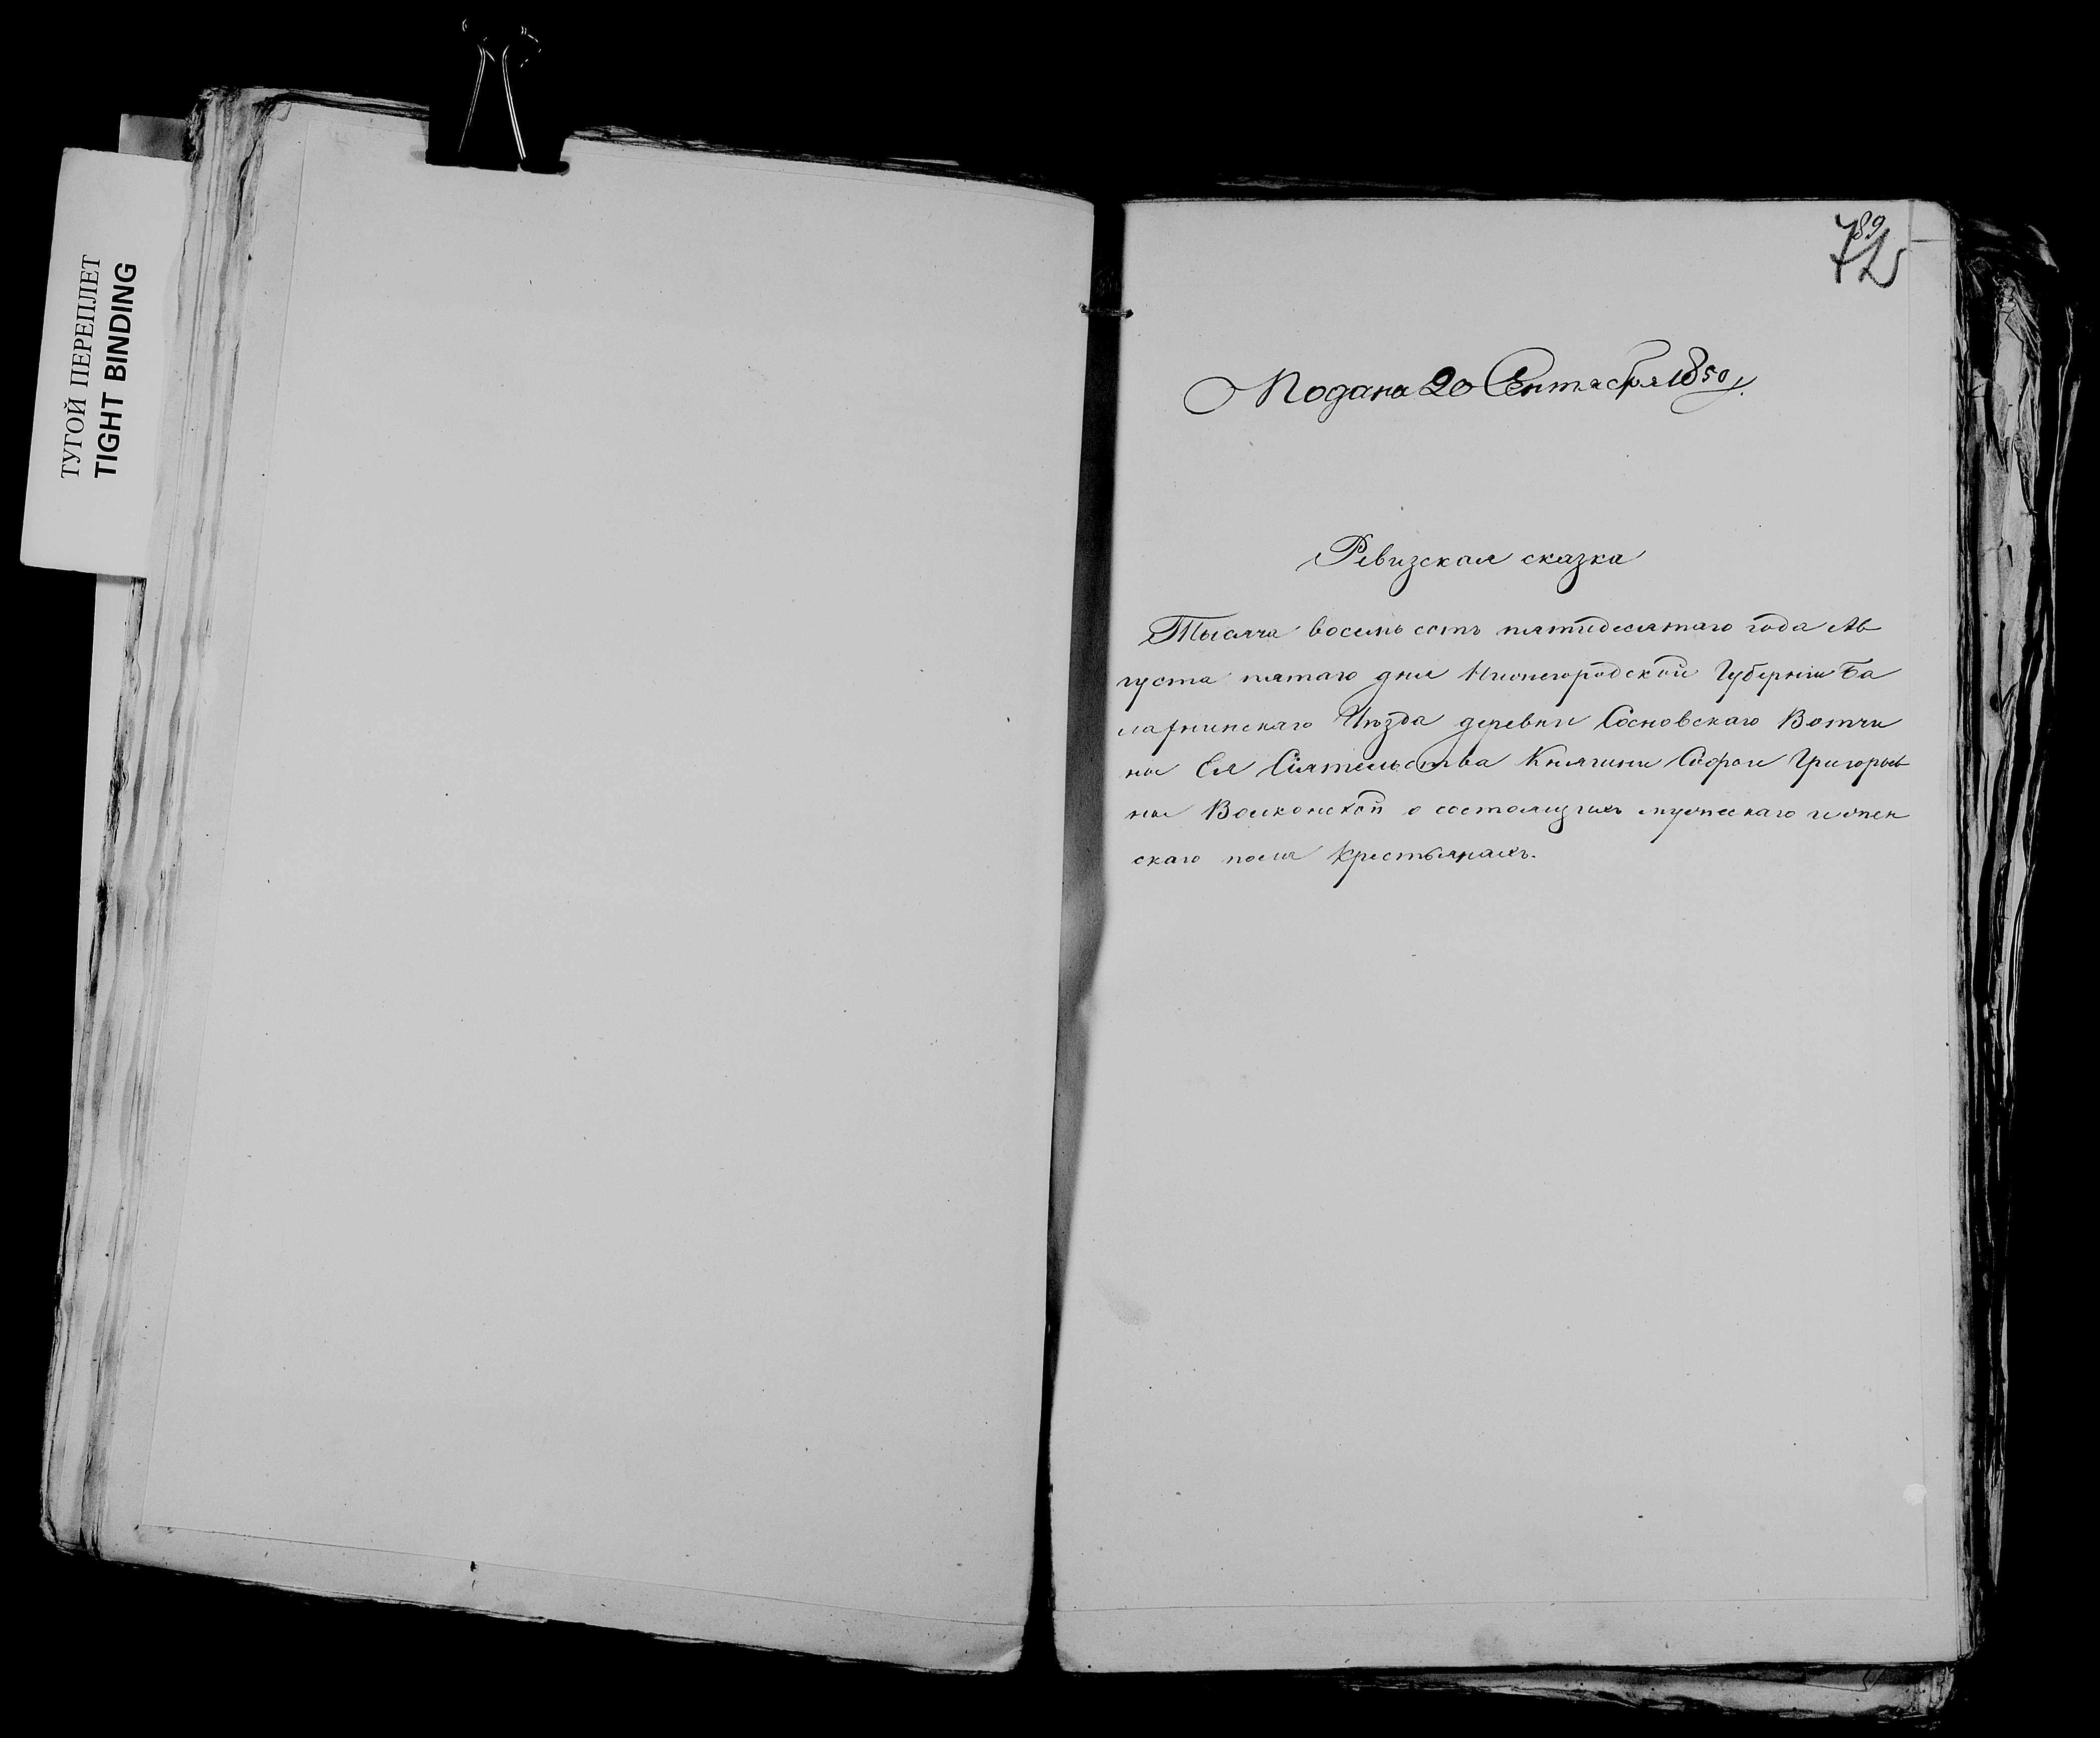 ТУГОЙ ПЕРЕПЛЕТ
TIGHT BINDING
89
72
Подана 20 Сентября 1850 г.
Ревизская сказка
Тысяча восемь сотъ пятидесятаго года Ав
густа пятаго дня Нижегородской Губернiи Ба
лахнинскаго Уѣзда деревни Сосновскаго Вотчи
ны Ея Сiятельства Княгини Софьи Григорьев
ны Волконской о состоящихъ мужескаго и женс
скаго пола крестьянахъ.